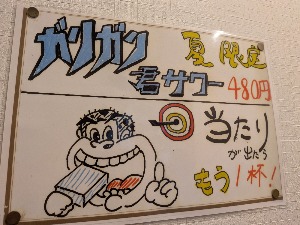 ガリガリ
夏限定
君サワー480円
当たり
が出たら
もう1杯!